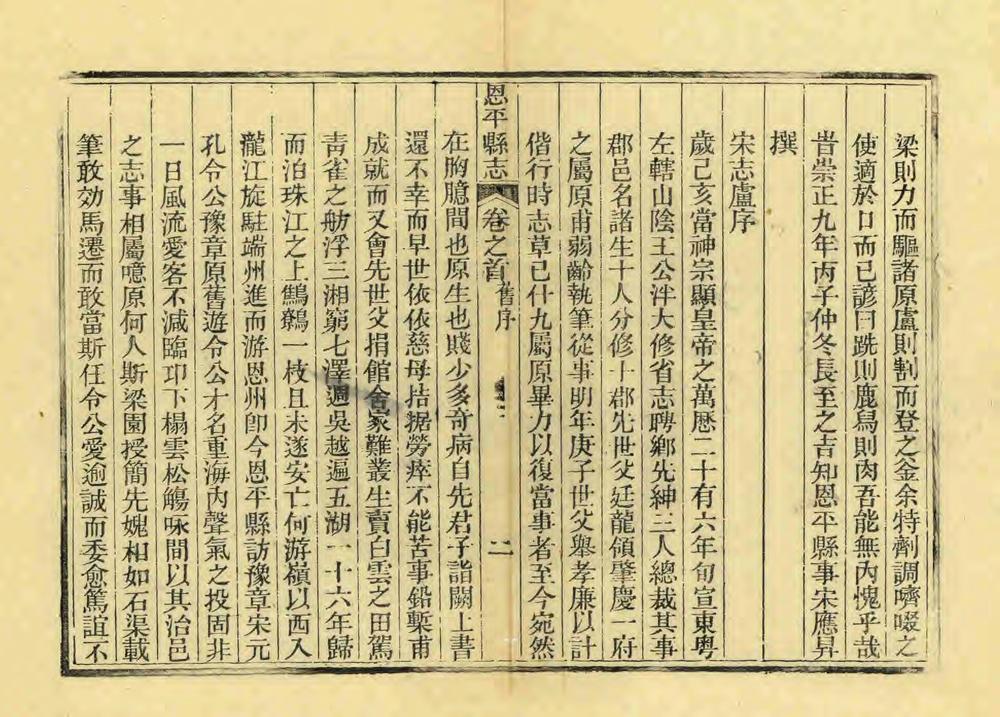 梁則力而驅諸原盧則割而登之金余特劑調嚌啜之
使適於口而已諺曰跣則鹿鳥則肉吾能無內愧乎哉
旹崇正九年丙子仲冬長至之吉知恩平縣事宋應昇
撰
宋志盧序
歲己亥當神宗顯皇帝之萬曆二十有六年旬宣東粵
左轄山陰王公泮大修省志聘鄉先紳三人總裁其事
郡邑名諸生十人分修十郡先世父廷龍領肇慶一府
之屬原甫弱齡執筆從事明年庚子世父舉孝廉以計
偕行時志草已什九屬原畢力以復當事者至今宛然
恩平縣志 卷之首 舊序 二
在胸臆間也原生也賤少多奇病自先君子詣闕上書
還不幸而早世依依慈母拮据勞瘁不能苦事鉛槧甫
成就而又會先世父捐館舍家難叢生賣白雲之田駕
青雀之舫浮三湘窮七澤週吳越遍五湖一十六年歸
而泊珠江之上鷦鷯一枝且未遂安亡何游嶺以西入
龍江旋駐端州進而游恩州卽今恩平縣訪豫章宋元
孔令公豫章原舊遊令公才名重海內聲氣之投固非
一日風流愛客不減臨卭下榻雲松觴咏間以其治邑
之志事相屬噫原何人斯梁園授簡先媿相如石渠載
筆敢効馬遷而敢當斯任令公愛逾誠而委愈篤誼不